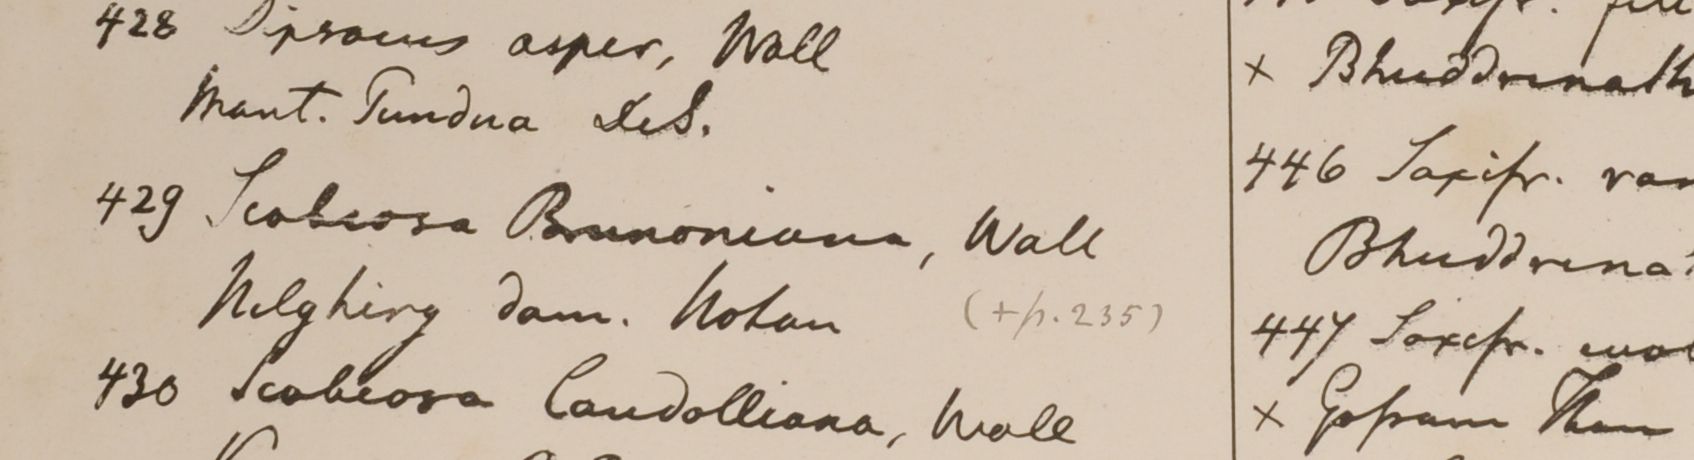 428 Dipsacus asper, Wall
Mont. Tundua DeS.
429 Scabiosa Brunoniana, Wall
Nilghiry dom. Notan (+p. 235)
430 Scabiosa Candolliana, Wall
× Bhuddrinath
446 Saxifr.
Bhuddrina
447 Saxifr.
× Gossam Than